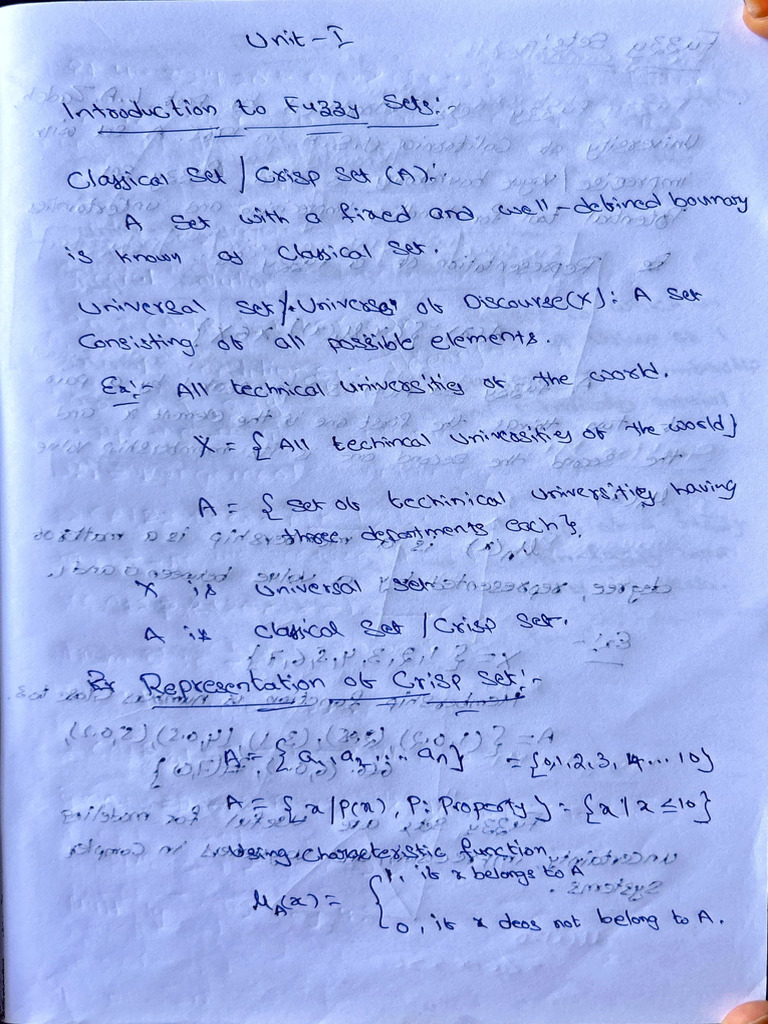 Unit-I
Introduction to Fuzzy Sets:-
Classical Set / Crisp Set (A):
A Set with a fixed and well-defined bounary
is known as Classical Set.
Universal Set / Universe of Discourse(X): A Set
Consisting of all possible elements.
Ex:- All technical universities of the world.
X = { All techincal Universities of the world}
A = { set of techinical universities having
three departments each}.
X is Universal set
A is Classical Set / Crisp Set.
Representation of Crisp Set:-
A = {a1, a2, ... an} = {0,1,2,3,4...10}
A = {x/P(x), P: Property} = {x/x ≤10}
Using characteristic function
μA(x) = { 1, if x belongs to A
0, if x deos not belong to A.